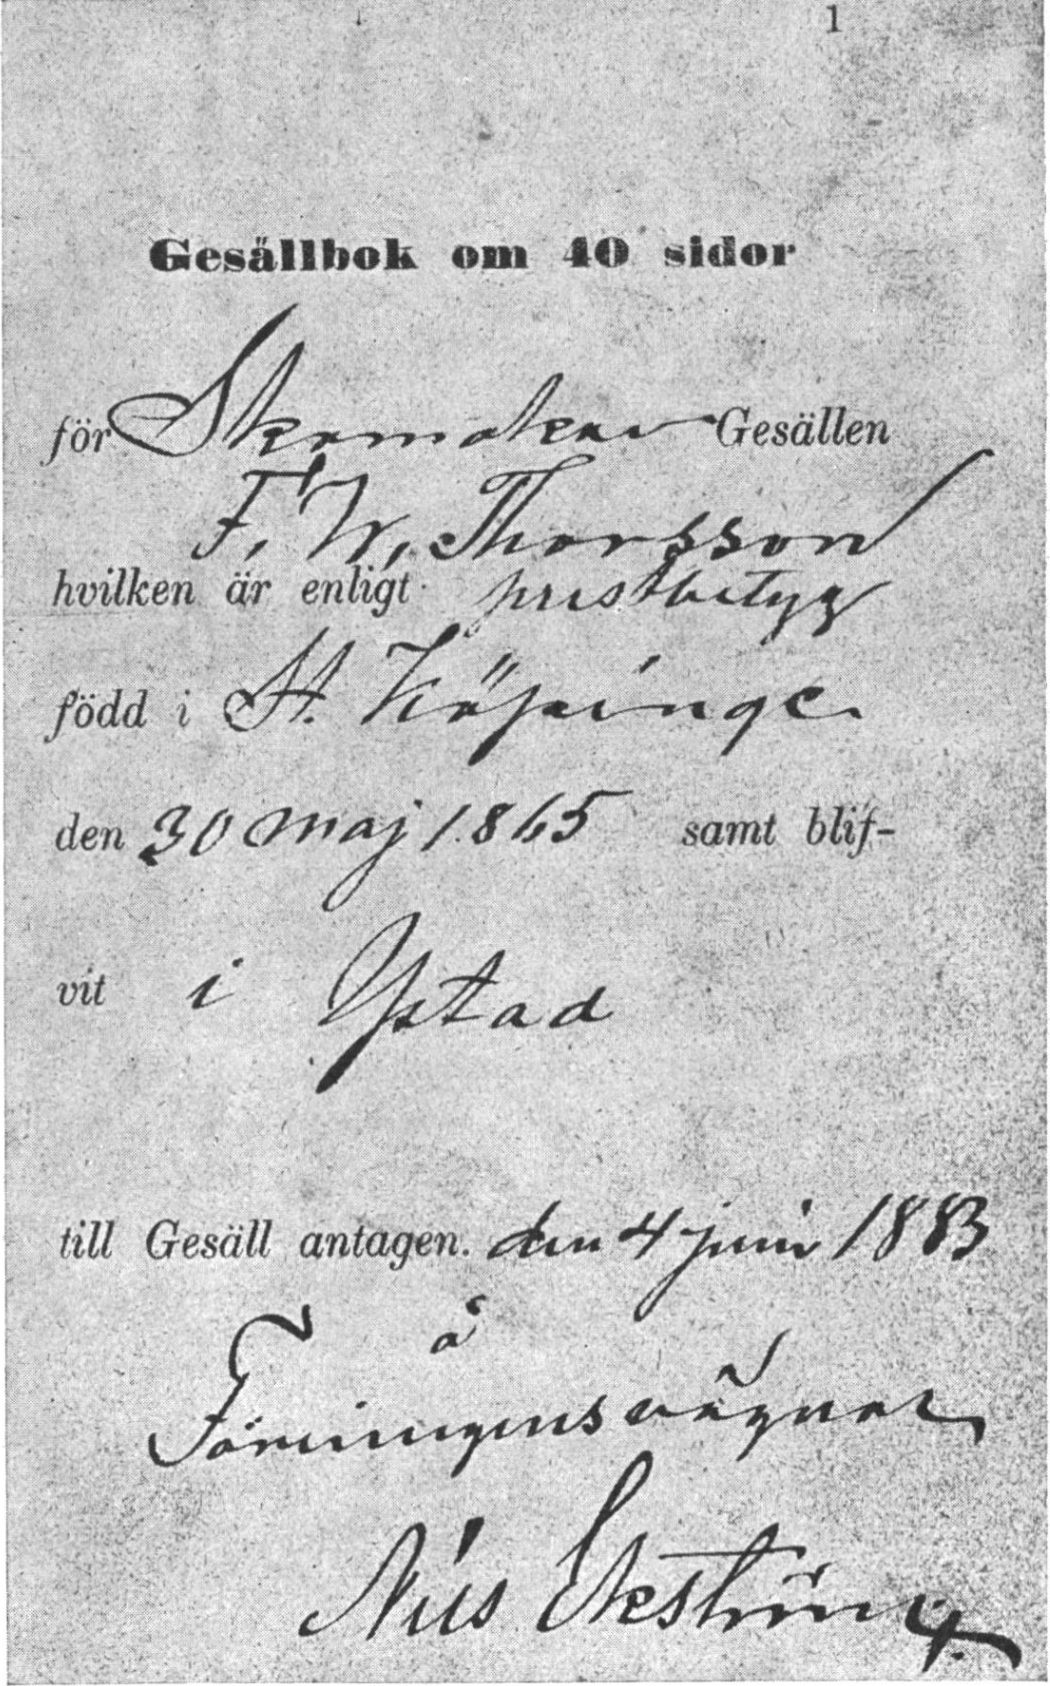 1
Gesällbok om 40 sidor
för Skomakar Gesällen
F. W. Thorsson
hvilken är enligt prestbetyg
född i St. Köpinge.
den 30 maj 1865 samt blif-
vit i Ystad
till Gesäll antagen. den 4 juni 1883
å
Föreningens vägnar
Nils Ekström